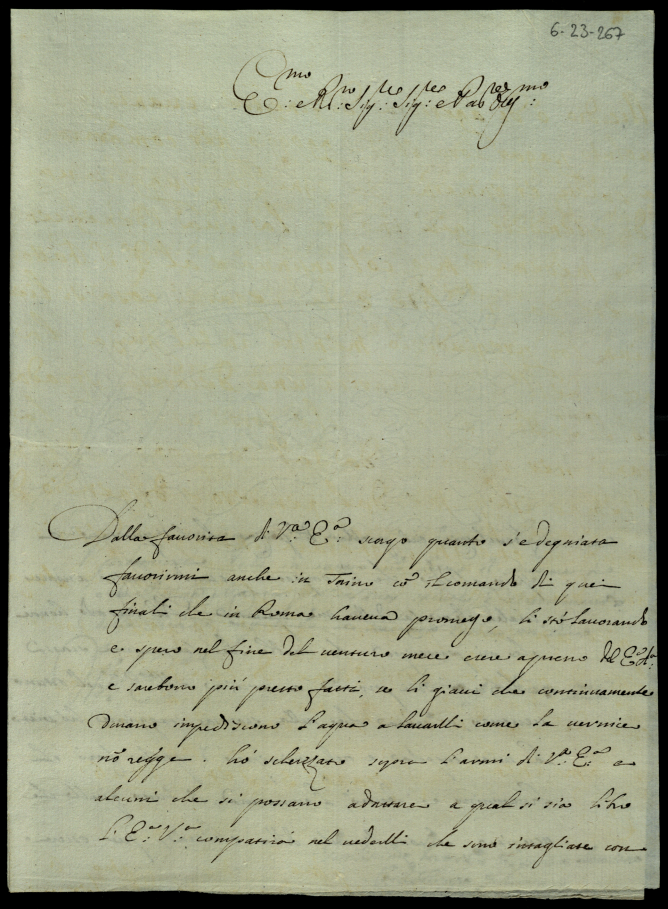 6-23-267
Em̃o R.mo Sig.re Sig.re e Pad.ne
Dalla favorita di V.ra E.a scorgo quanto s'e degniata
favorirmi anche in Torino cõ il comando di quei
finali che in Roma haveva promesso, li stò lavorando
e spero nel fine del venturo mese esere apresso dell' E.a V.a
e sarebono più presto fatti, se li giaci che continuamente
durano impediscono l'aqua a lavarlli come la vernice
nõ regge. hò scherzzato sopra l'armi di V.a E.a e
alcuni che si possano adattare a qual si sia libro
l'E.a V.a compatirà nel vederlli che sono intagliate con